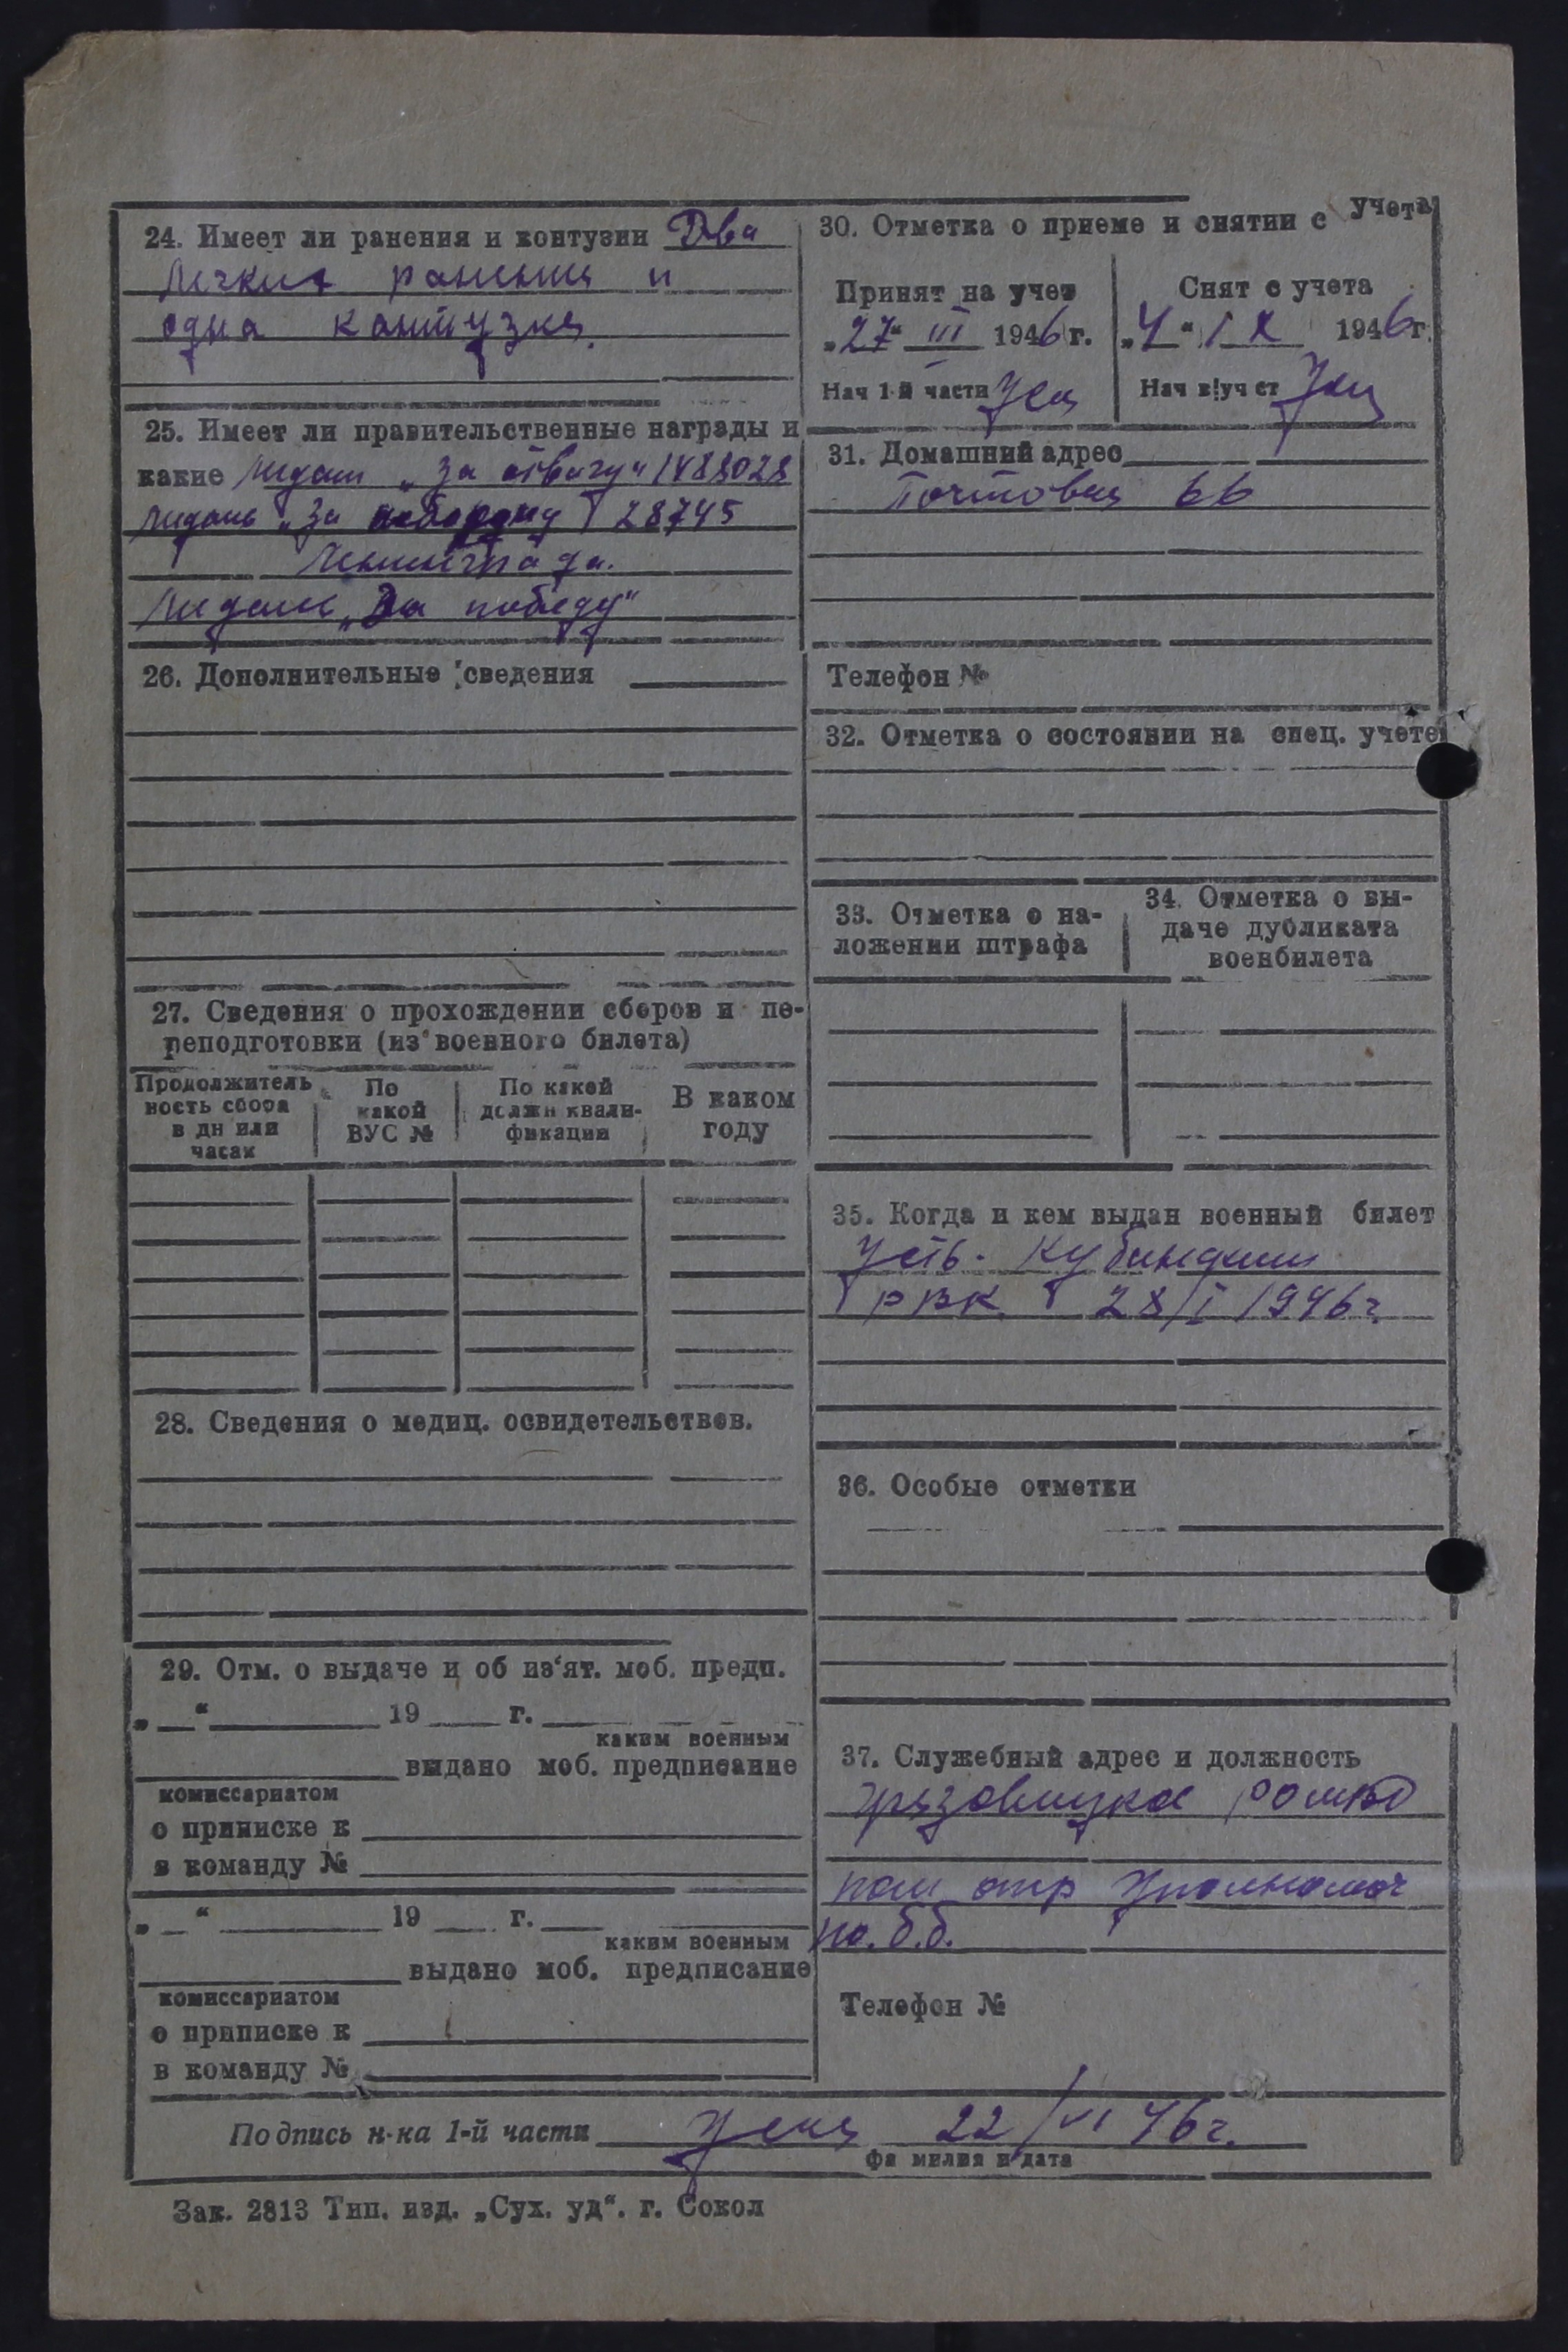 24. Имеет ли ранения и контузии Два
легких ранения и
одна кантузия.
25. Имеет ли правительственные награды и
какие медаль „За отвагу" 1488028
медаль „За оборону 28745
Ленинграда.
медаль „За победу"
26. Дополнительные сведения
27. Сведения о прохождении сборов и пе-
реподготовки (из военного билета)
Продолжитель
ность сбора
в дн или
часах
По
какой
ВУС №
По какой
должн квали-
фикации
В каком
году
28. Сведения о медиц. освидетельствов.
29. Отм. о выдаче и об из‘ят. моб. предп.
„ “ 19 г.
каким военным
выдано моб. предписание
комиссариатом
о приписке к
в команду №
„ “ 19 г.
каким военным
выдано моб. предписание
комиссариатом
о приписке к
в команду №
30. Отметка о приеме и снятии с учета
Принят на учет
„27" III 1946 г.
Нач 1-й части
Снят с учета
„4" IX 1946 г.
Нач в/уч ст
31. Домашний адрес
Почтовая 66
Телефон №
32. Отметка о состоянии на спец. учете
33. Отметка о на-
ложении штрафа
34. Отметка о вы-
даче дубликата
военбилета
35. Когда и кем выдан военный билет
Усть-Кубинским
РВК 28/I 1946 г.
36. Особые отметки
37. Служебный адрес и должность
Грязовицкое РОМВД
пом опр Уполномоч
по. б.б.
Телефон №
Подпись н-ка 1-й части 22/VI 46 г.
фамилия и дата
Зак. 2813 Тип. изд. „Сух. уд“. г. Сокол